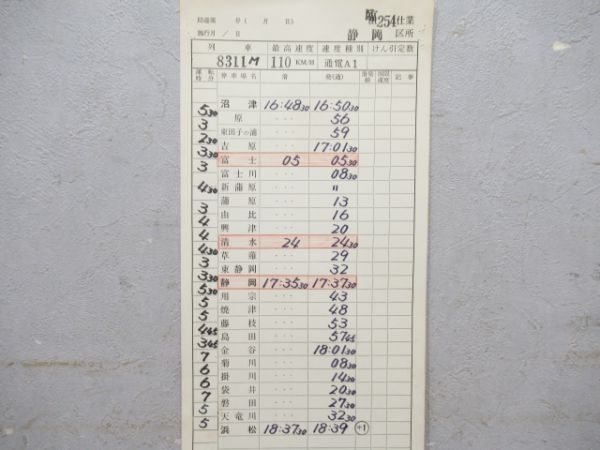 局達第 号( 月 日) 臨254仕業
施行月 / 日 静岡 区所
列車 最高速度 速度種別 けん引定数
8311M 110KM/H 通電A1
運転時分 停車場名 着 発(通) 着発線 制限速度 記事
沼津 16:4830 16:5030
530 原 ... 56
3 東田子の浦 ... 59
230 吉原 ... 17:0130
330 富士 05 0530
3 富士川 ... 0830
新蒲原 ... 〃
430 蒲原 ... 13
3 由比 ... 16
4 興津 ... 20
4 清水 24 2430
430 草薙 ... 29
3 東静岡 ... 32
330 静岡 17:3530 17:3730
530 用宗 ... 43
5 焼津 ... 48
5 藤枝 ... 53
445 島田 ... 5745
345 金谷 ... 18:0130
7 菊川 ... 0830
6 掛川 ... 1430
6 袋井 ... 2030
7 磐田 ... 2730
5 天竜川 ... 3230
5 浜松 18:3730 18:39 +1